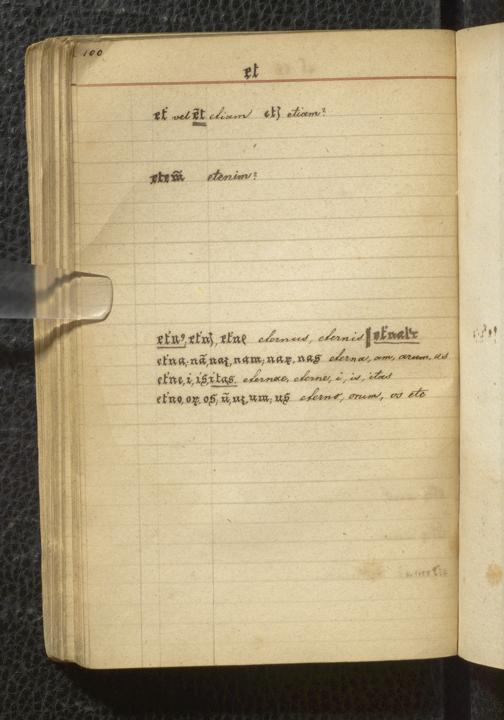 100
et
et vel et̄ etiam etꝫ etiam:
etem̄ etenim:
et'nꝰ, et'nꝭ, et'ne eternus, eternis ‖ et'nalr
et'na, nā, naꝝ, nam, nas eterna, am, arum, as
et'ne, i, is, itas. eternae, eterne, i, is, itas
et'no, oꝝ, os, ū, um, us eterno, orum, os etc